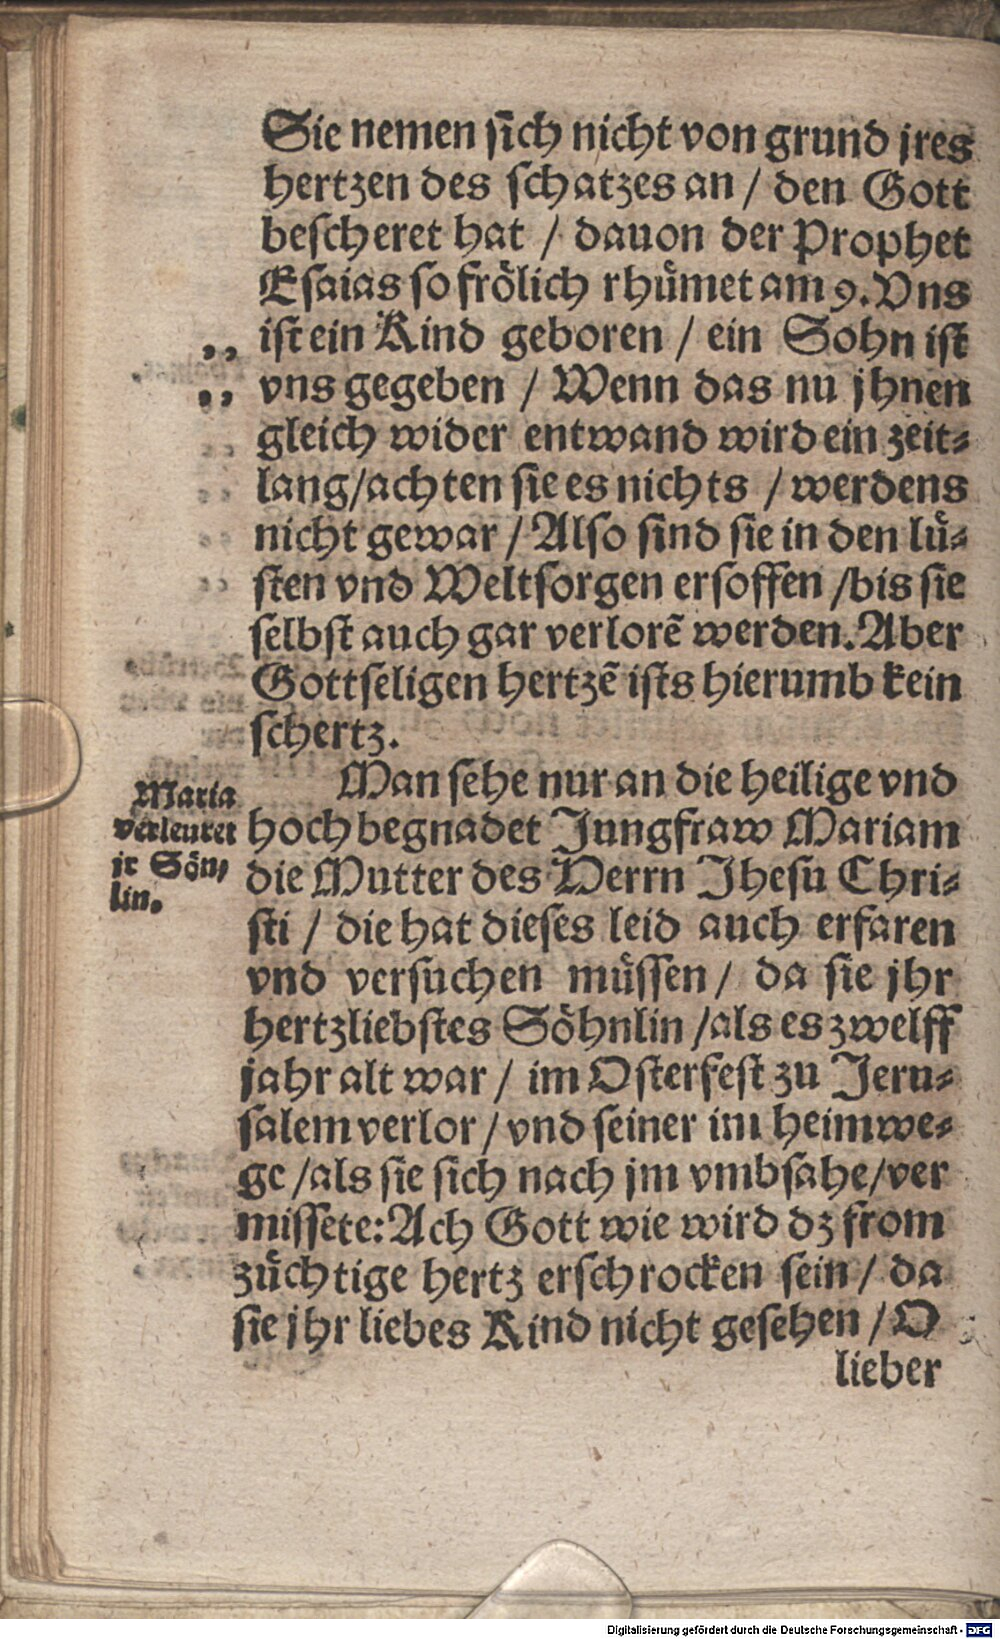 Sie nemen sich nicht von grund jres
hertzen des schatzes an / den Gott
bescheret hat / dauon der Prophet
Esaias so frölich rhümet am 9. Vns
,, ist ein Kind geboren / ein Sohn ist
,, vns gegeben / Wenn das nu jhnen
gleich wider entwand wird ein zeit-
lang/achten sie es nichts / werdens
nicht gewar / Also sind sie in den lü-
sten vnd Weltsorgen ersoffen /bis sie
selbst auch gar verlorẽ werden. Aber
Gottseligen hertzẽ ists hierumb kein
schertz.
Man sehe nur an die heilige vnd
hochbegnadet Jungfraw Mariam
die Mutter des Herrn Jhesu Chri-
sti / die hat dieses leid auch erfaren
vnd versuchen müssen / da sie jhr
hertzliebstes Söhnlin /als es zwelff
jahr alt war / im Osterfest zu Jeru-
salem verlor / vnd seiner im heimwe-
ge /als sie sich nach jm vmbsahe/ver
missete: Ach Gott wie wird dz from
züchtige hertz erschrocken sein / da
sie jhr liebes Kind nicht gesehen / O
lieber
Maria
verleuret
jr Sön,
lin.
Digitalisierung gefördert durch die Deutsche Forschungsgemeinschaft - DFG